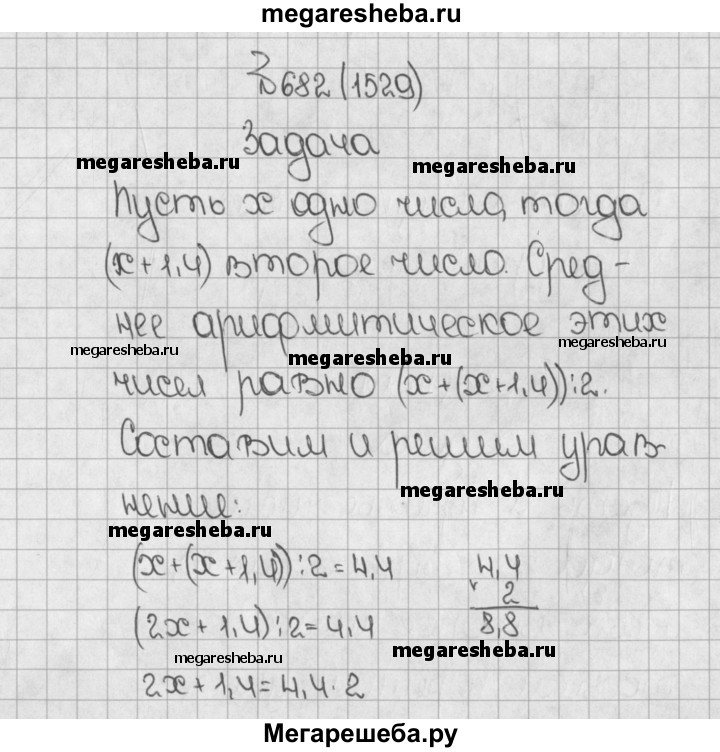 megaresheba.ru
№682 (1529)
Задача
megaresheba.ru
megaresheba.ru
Пусть x одно числа, тогда
(x+1,4) второе число. Сред-
нее арифмитическое этих
megaresheba.ru
megaresheba.ru
megaresheba.ru
чисел равно (x+(x+1,4)):2.
Составим и решим урав
megaresheba.ru
нение:
megaresheba.ru
(x+(x+1,4)):2=4,4
4,4
× 2
8,8
(2x+1,4):2=4,4
megaresheba.ru
megaresheba.ru
2x+1,4=4,4·2
Мегарешеба.ру